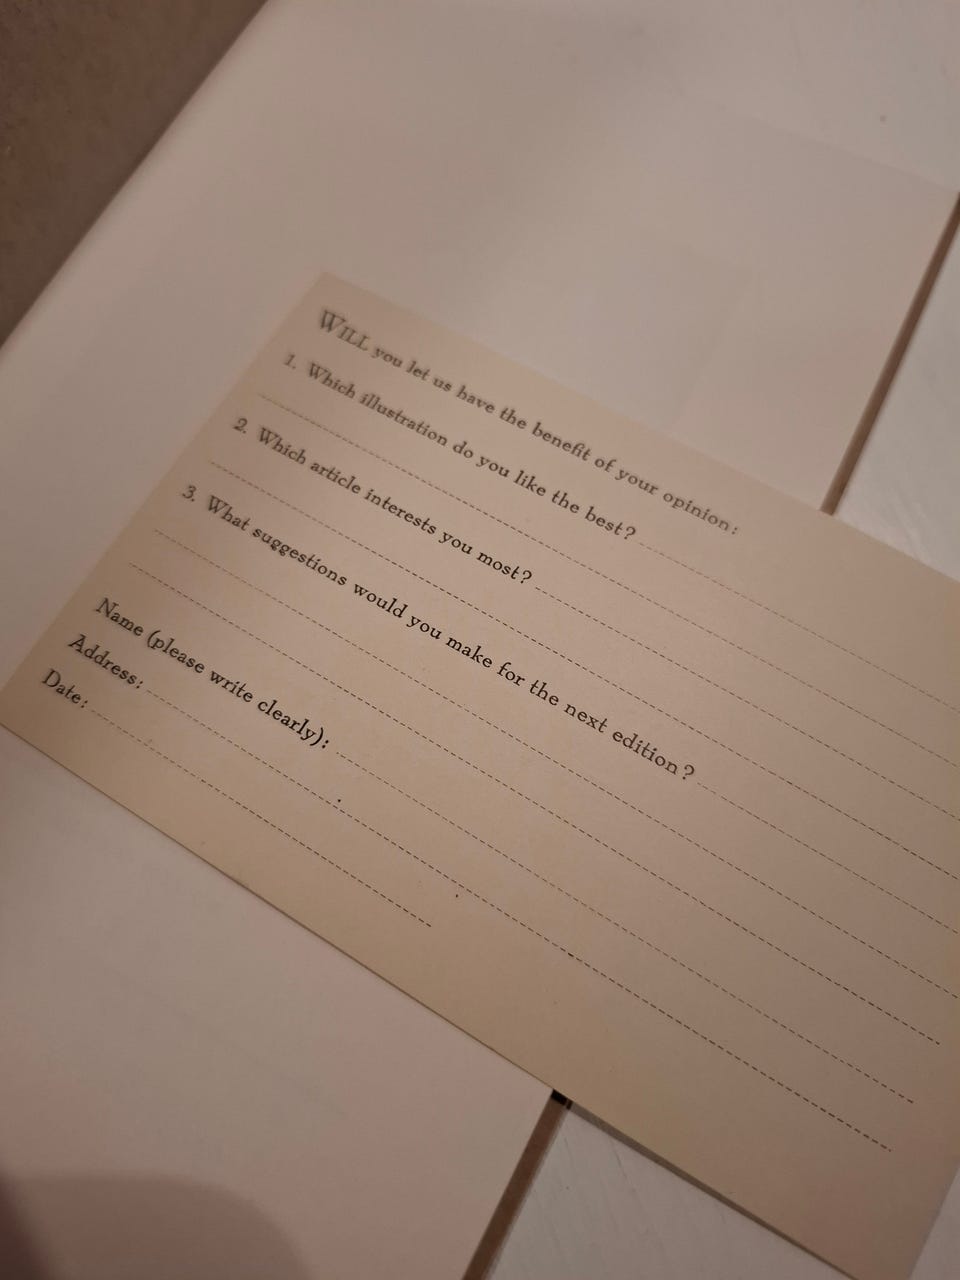 WILL you let us have the benefit of your opinion:
1. Which illustration do you like the best?
2. Which article interests you most?
3. What suggestions would you make for the next edition?
Name (please write clearly):
Address:
Date: